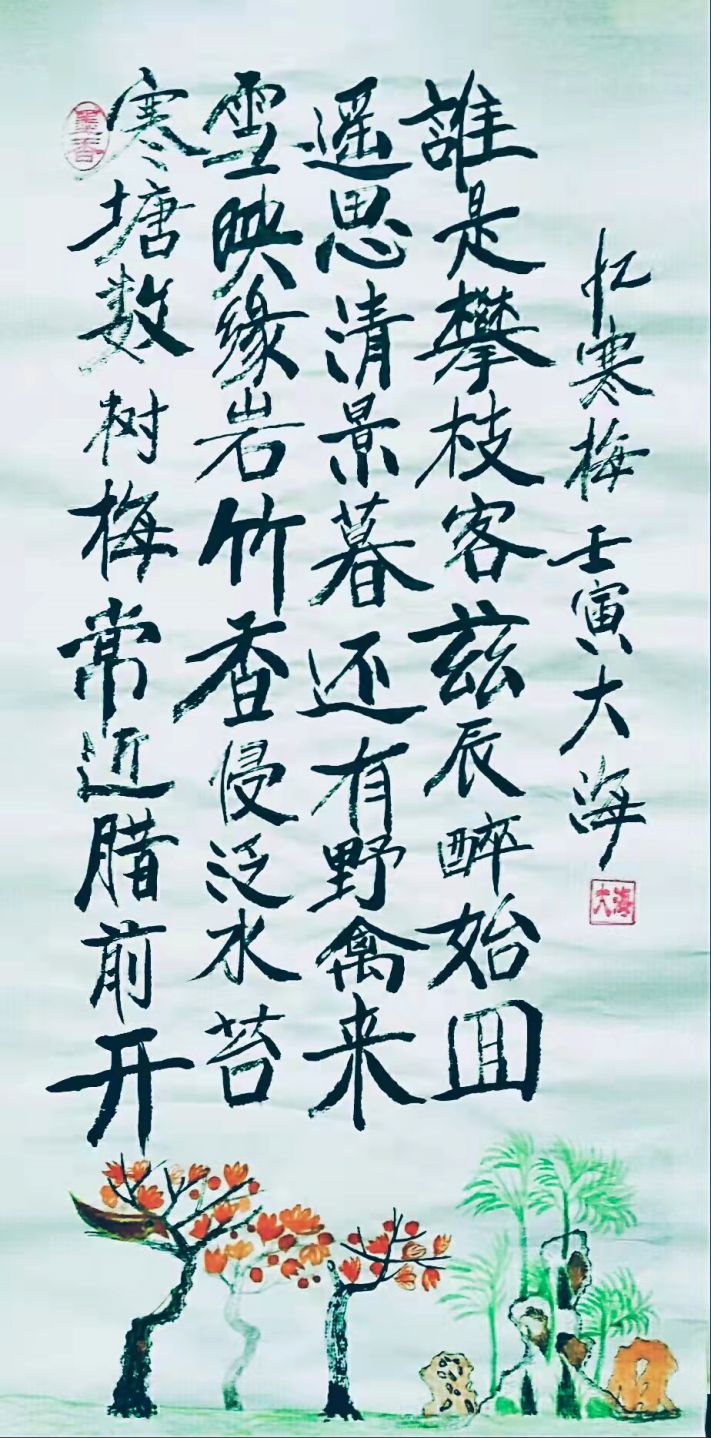 墨香
寒塘数树梅常近腊前开
雪映缘岩竹香侵泛水苔
遥思清景暮还有野禽来
誰是攀枝客兹辰醉始囬
忆寒梅壬寅大海
大海